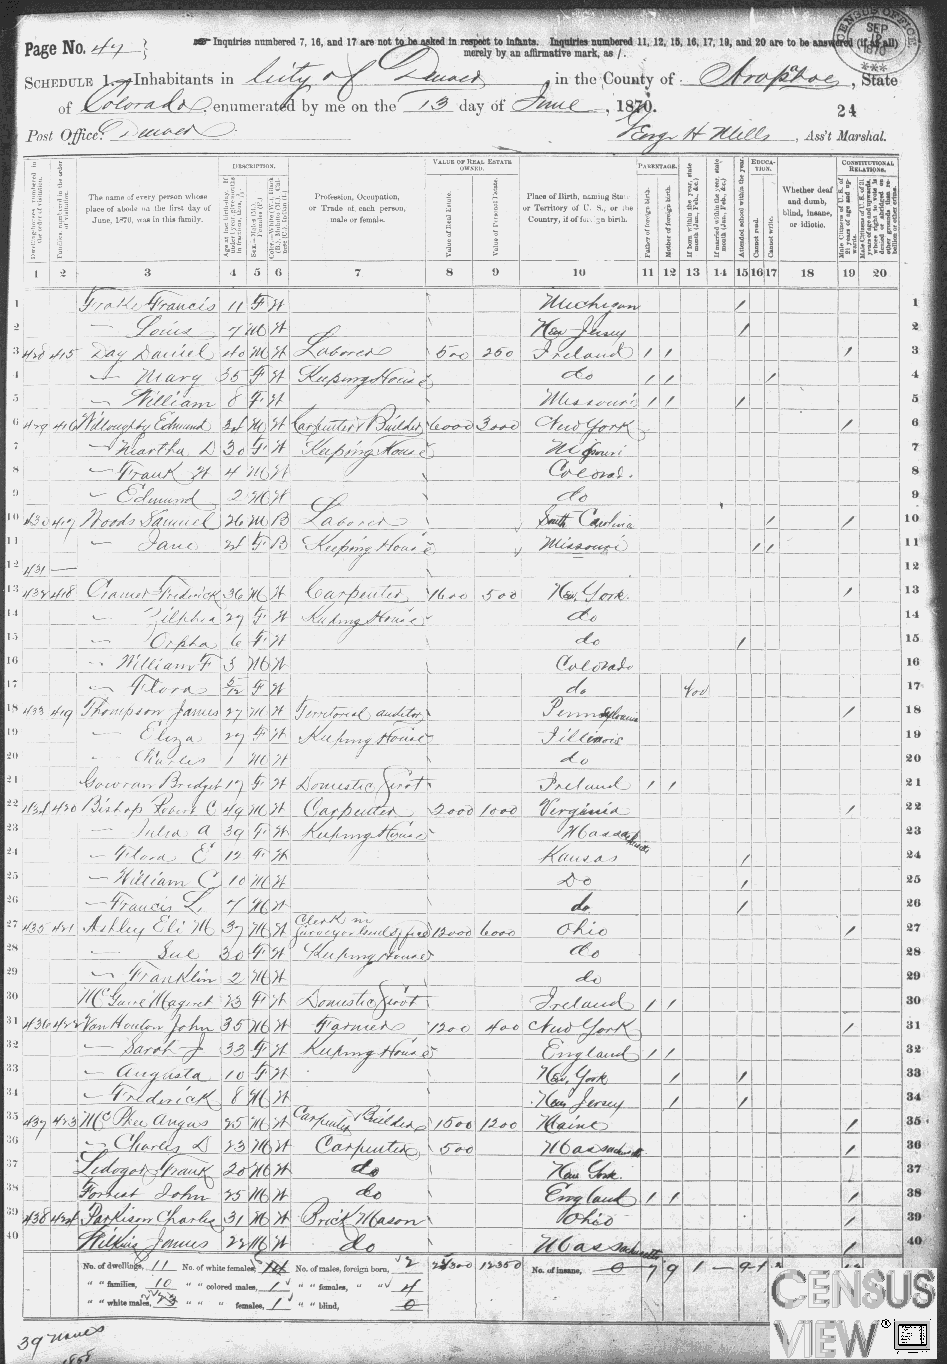 Page No. 47
Inquiries numbered 7, 16, and 17 are not to be asked in respect to infants. Inquiries numbered 11, 12, 15, 16, 17, 19, and 20 are to be answered (if at all)
merely by an affirmative mark, as /.
CENSUS OFFICE SEP 1870
SCHEDULE 1.—Inhabitants in City of Denver, in the County of Arapahoe, State
of Colorado, enumerated by me on the 13 day of June, 1870.
24
Post Office: Denver
H Mills, Ass't Marshal.
DESCRIPTION.
VALUE OF REAL ESTATE OWNED.
PARENTAGE.
EDUCATION.
CONSTITUTIONAL RELATIONS.
The name of every person whose place of abode on the first day of June, 1870, was in this family.
Profession, Occupation, or Trade of each person, male or female.
Value of Real Estate.
Value of Personal Estate.
Place of Birth, naming State or Territory of U. S., or the Country, if of foreign birth.
Father of foreign birth.
Mother of foreign birth.
Attended school within the year.
Cannot read.
Cannot write.
Whether deaf and dumb, blind, insane, or idiotic.
1 2 3 4 5 6 7 8 9 10 11 12 13 14 15 16 17 18 19 20
1 Francis 11 F W Michigan / 1
2 — Louis 7 M W New Jersey / 2
3 428 415 Day Daniel 40 M W Laborer 500 250 Ireland / / / 3
4 — Mary 35 F W Keeping House do / / / 4
5 — William 8 W Missouri / / / 5
6 429 416 Willoughby Edmund 34 M W Carpenter Builder 6000 3000 New York / 6
7 — Martha D 30 F W Keeping House Missouri 7
8 — Frank H 4 M W Colorado 8
9 — Edmund 2 M W do 9
10 430 417 Woods Samuel 26 M B Laborer South Carolina / / 10
11 — Jane 24 F B Keeping House Missouri / / 11
12 431 — 12
13 432 418 Cramer Frederick 36 M W Carpenter 1600 500 New York / 13
14 — Zilphia 29 F W Keeping House do 14
15 — Orpha 6 F W do / 15
16 — William F 3 M W Colorado 16
17 — Flora 5/12 F W do 17
18 433 419 Thompson James 27 M W Territorial auditor Pennsylvania / 18
19 — Eliza 27 F W Keeping House Illinois 19
20 — Charles 1 M W do 20
21 Gowran Bridget 17 F W Domestic Servt Ireland / / 21
22 434 420 Bishop Robert C 49 M W Carpenter 2000 1000 Virginia / 22
23 — Julia A 39 F W Keeping House Massachusetts 23
24 — Flora E 12 F W Kansas / 24
25 — William C 10 M W Do / 25
26 — Francis L 7 M W do / 26
27 435 421 Ashley Eli M 37 M W Clerk in Surveyor Genls office 12000 6000 Ohio / 27
28 — Sue 30 F W Keeping House do 28
29 — Franklin 2 M W do 29
30 McGuire Magaret 23 F W Domestic Servt Ireland / / 30
31 436 422 Van Houton John 35 M W Farmer 1200 400 New York / 31
32 — Sarah J 33 F W Keeping House England / / 32
33 — Augusta 10 F W New York / / 33
34 — Frederick 8 M W New Jersey / / 34
35 437 423 McPhee Angus 25 M W Carpenter Builder 1500 1200 Maine / 35
36 — Charles D 23 M W Carpenter 500 Massachusetts / 36
37 Frank 20 M W do New York 37
38 Forrest John 25 M W do England / / / 38
39 438 424 Parkison Charles 31 M W Brick Mason Ohio / 39
40 Wilkins James 22 M W do Massachusetts / 40
No. of dwellings, 11 No. of white females, No. of males, foreign born, 2 12350 No. of insane, 0 7 9 1 — 9 1
" " families, 10 " " colored males, 1 " " females, " 4
" " white males, " " " females, 1 " " blind, 0
39 names
CENSUS
VIEW